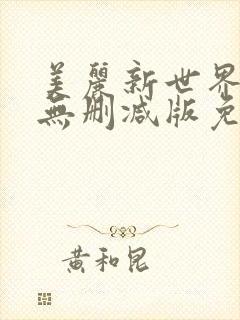 美麗新世界
無刪减版免
黃和昆